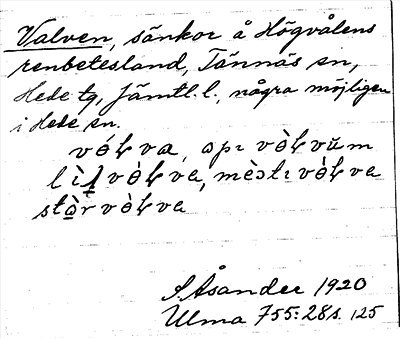 Valven, sänkor å Högvålens
renbetesland, Tännäs sn,
Hede tg, Jämtl. l., några möjligen
i Hede sn.
vòɫva, opɩ vòɫvŭm
lìʈvòɫva, mèstɩ vòɫva
stòr vòɫva
S. Åsander 1920
Ulma 755:28 s. 125